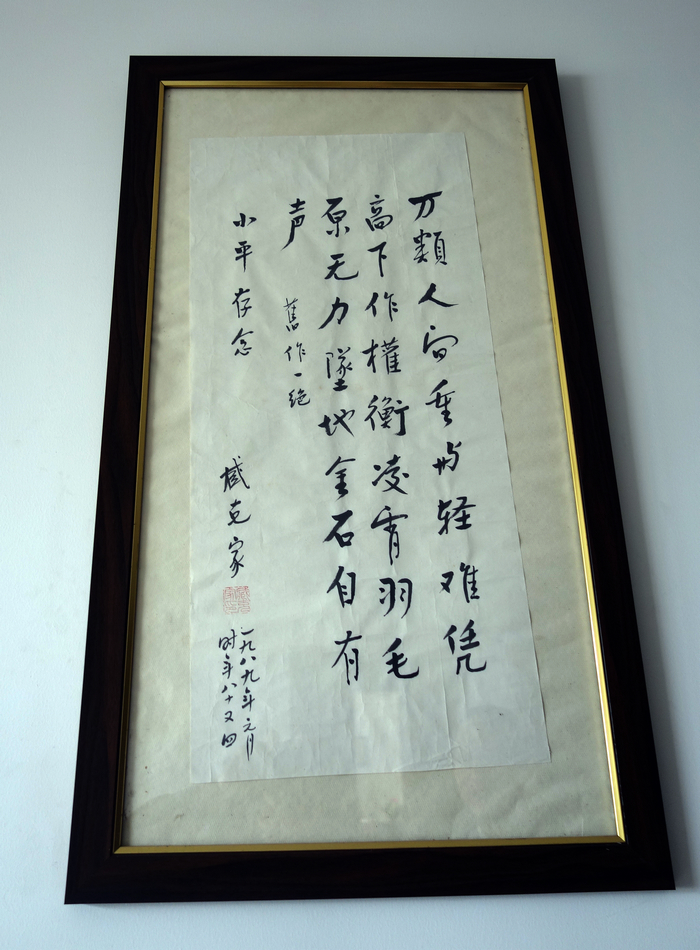 万類人间重与轻难凭
高下作權衡凌霄羽毛
原无力墜地金石自有
声
舊作一绝
小平存念
臧克家
一九八九年元月
时年八十又四